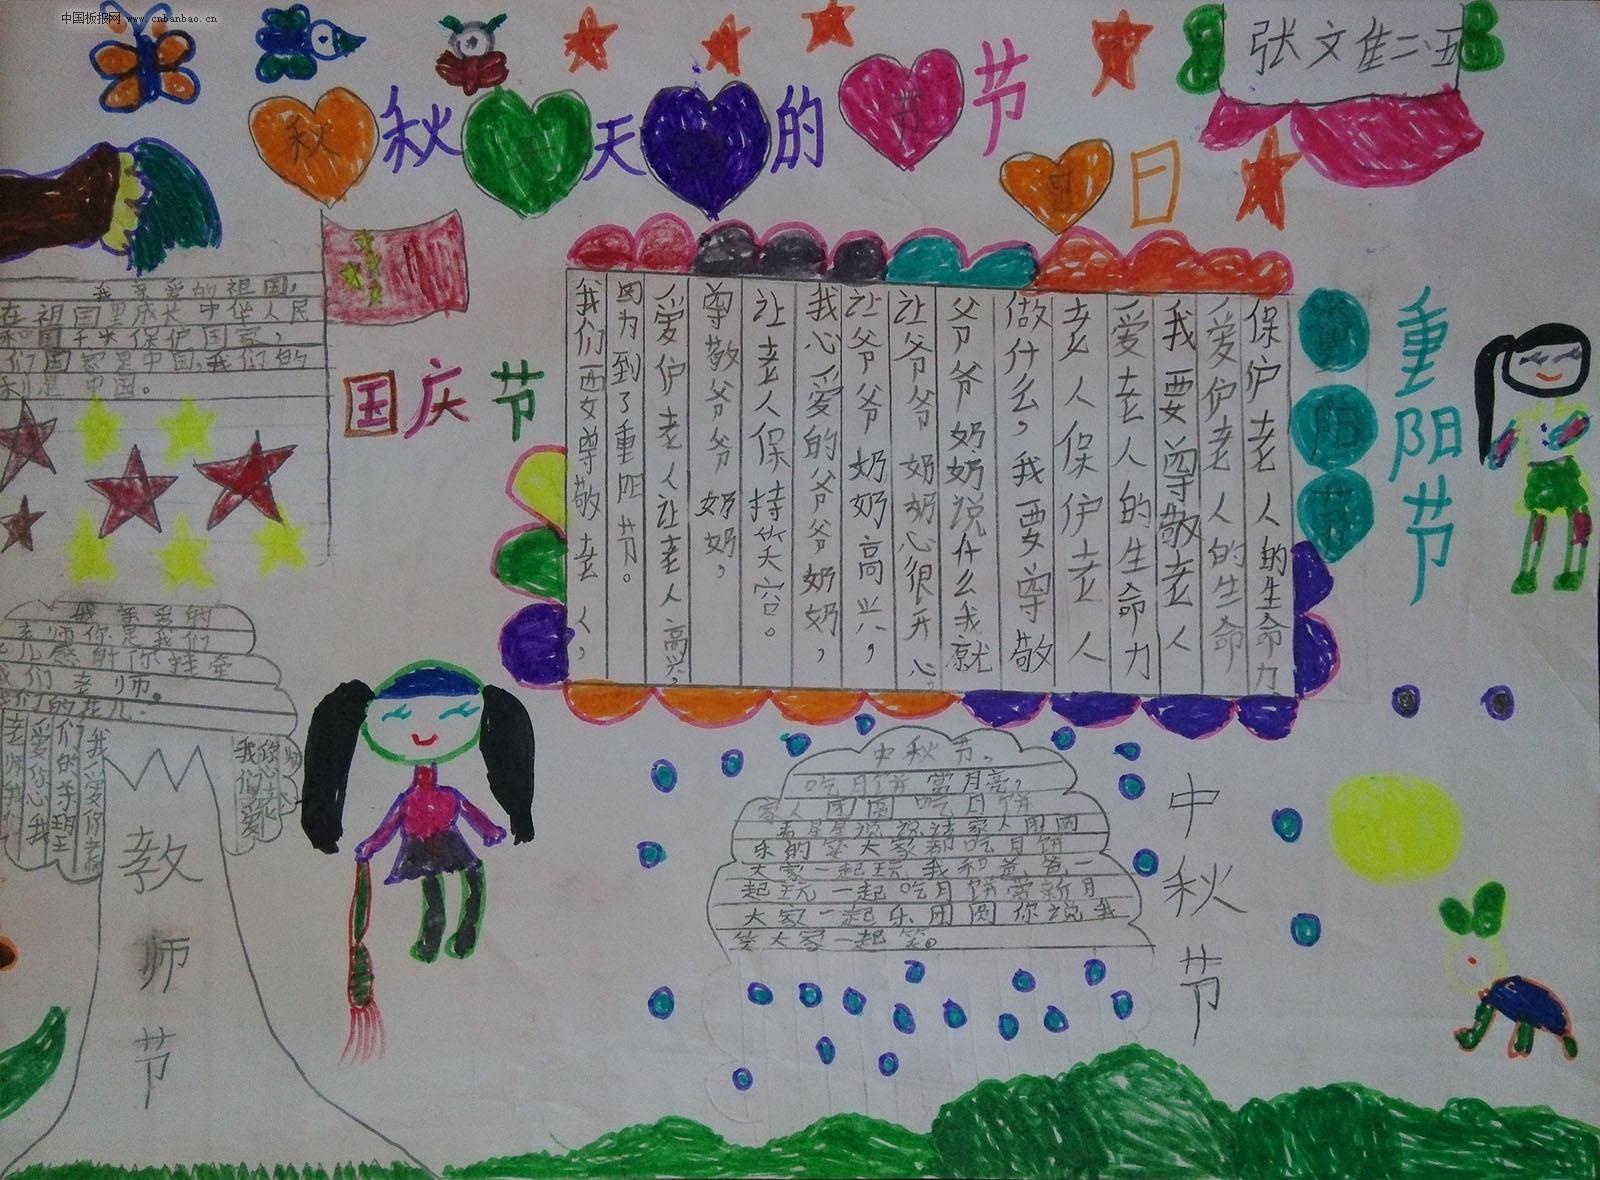 中国板报网 www.cnbanbao.cn
张文隹二五
秋秋天天的节节
日日
我亲爱的祖国,
在祖国里成长中华人民
保护国家,
们国家是中国,我们的
是中国。
国庆节
我们要尊敬老人,
因为到了重阳节。
爱护老人让老人高兴,
尊敬爷爷奶奶,
让老人保持笑容。
我心爱的爷爷奶奶,
让爷爷奶奶高兴,
让爷爷奶奶心很开心,
爷爷奶奶说什么我就
做什么,我要尊敬
老人保护老人
爱老人的生命力
我要尊敬老人
爱护老人的生命
保护老人的生命力
重阳节
重阳节
我亲爱的
老师你是我们
儿感谢你
我们老师。
我们的
教师节
中秋节。
吃月饼赏月亮,
家人团圆吃月饼
看星星说说话家人团圆
乐的笑大家都吃月饼
大家一起玩我和爸爸一
起玩一起吃月饼赏新月
大家一起乐团圆你说我
笑大家一起笑。
中秋节